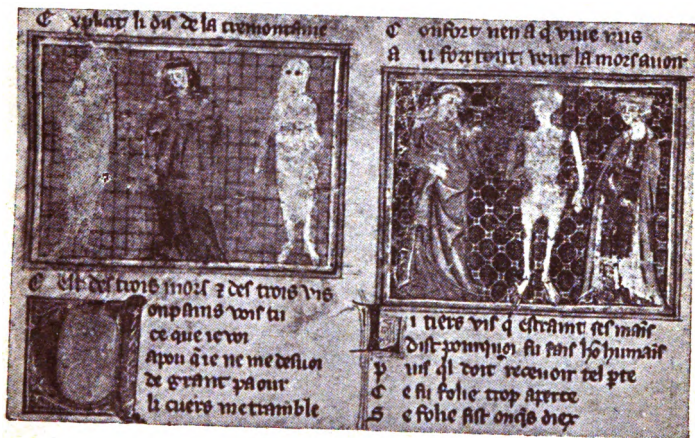 Explicit li dis de la tremontaine
C est des trois mors ⁊ des trois vis
onpains vois tu
ce que ie voi
a pou q̄ ie ne me desuoi
de grant paour
li cuers me tramble
C onfort nen a q̄ viue nus
A u fort tout veut la mors auoir
L i tiers vis q̄ estraint ses mais
Dist pourquoi fu fais hō humais
P uis q̄l doit receuoir tel pte
C e fu folie trop aperte
S e folie fist onq̄s diex